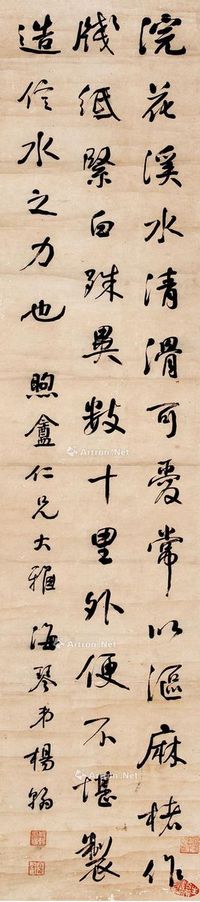 浣花溪水清滑可愛常以漚麻楮作
牋紙緊白殊異數十里外便不堪製
造信水之力也 煦盦仁兄大雅 海琴弟楊翰
Artron.Net
Artron.Net
Artron.Net